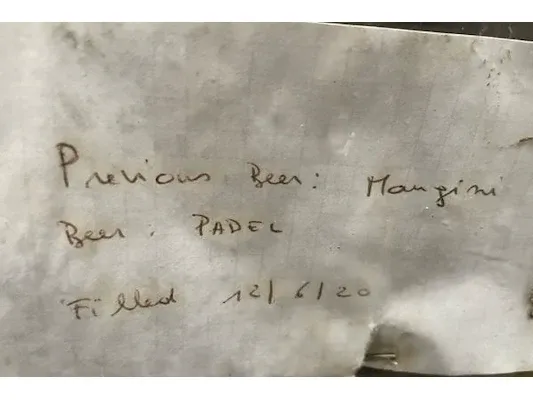 Previous Beer: Mangini
Beer: PADEL
Filled 12/6/20